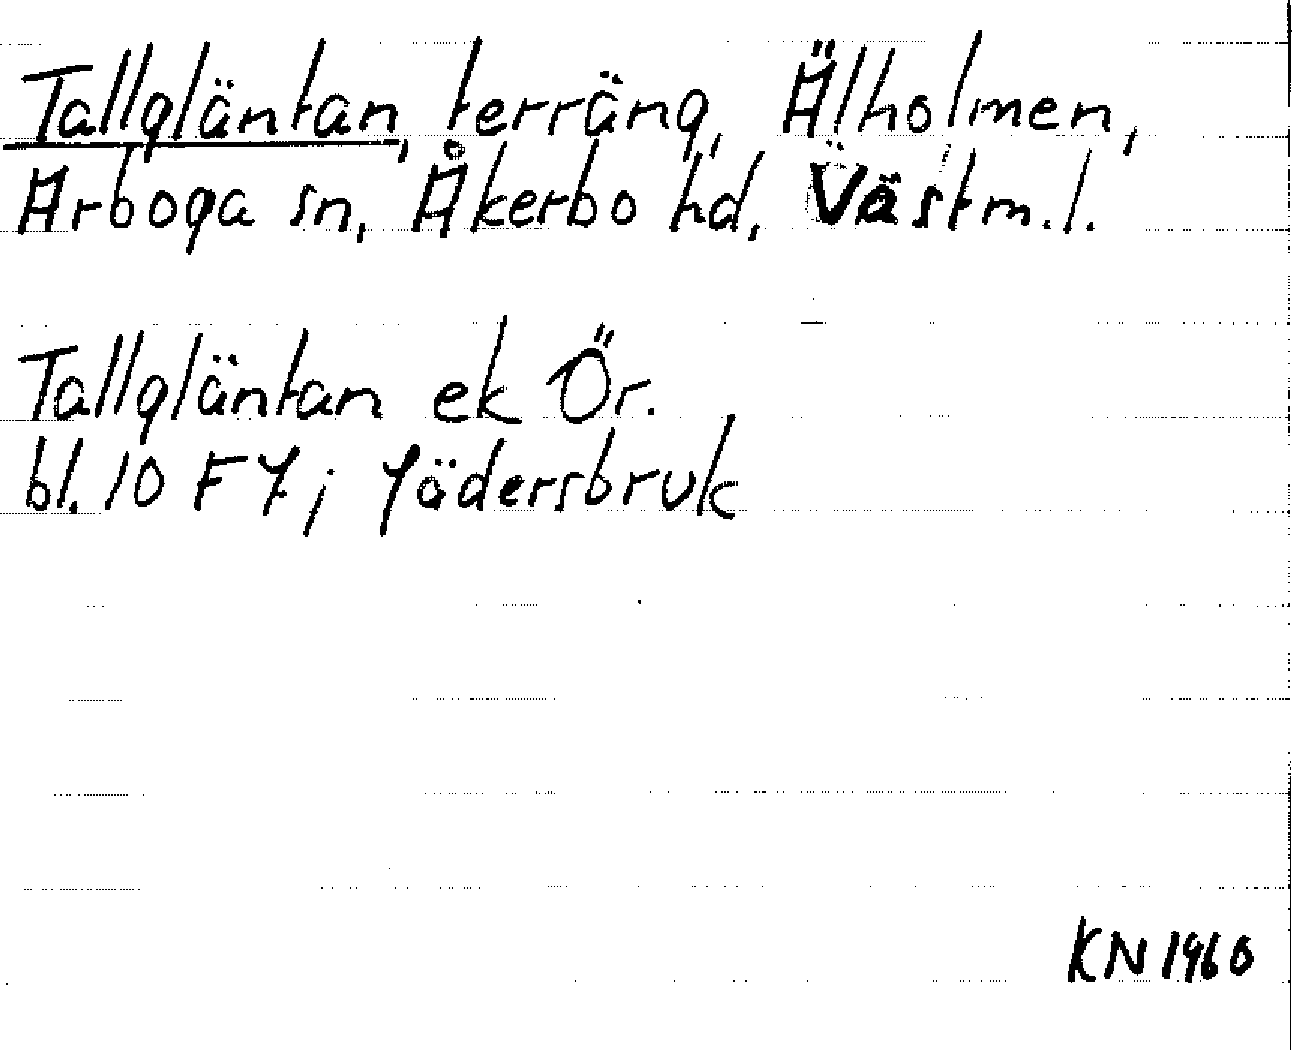 Tallgläntan, terräng, Älholmen,
Arboga sn, Åkerbo hd, Västm.l.
Tallgläntan ek Ör.
bl. 10 F 7; Jädersbruk
KN 1960